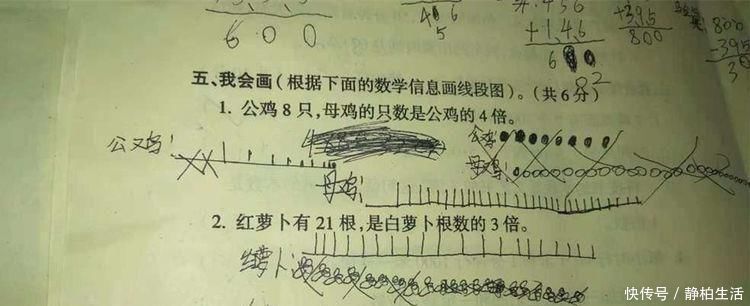 6 0 0
+1.46
+395
800
800
-395
五、我会画（根据下面的数学信息画线段图）。（共6分）
1. 公鸡8只，母鸡的只数是公鸡的4倍。
公鸡：
公鸡：
母鸡：
母鸡：
2. 红萝卜有21根，是白萝卜根数的3倍。
红萝卜：
快传号 / 静柏生活